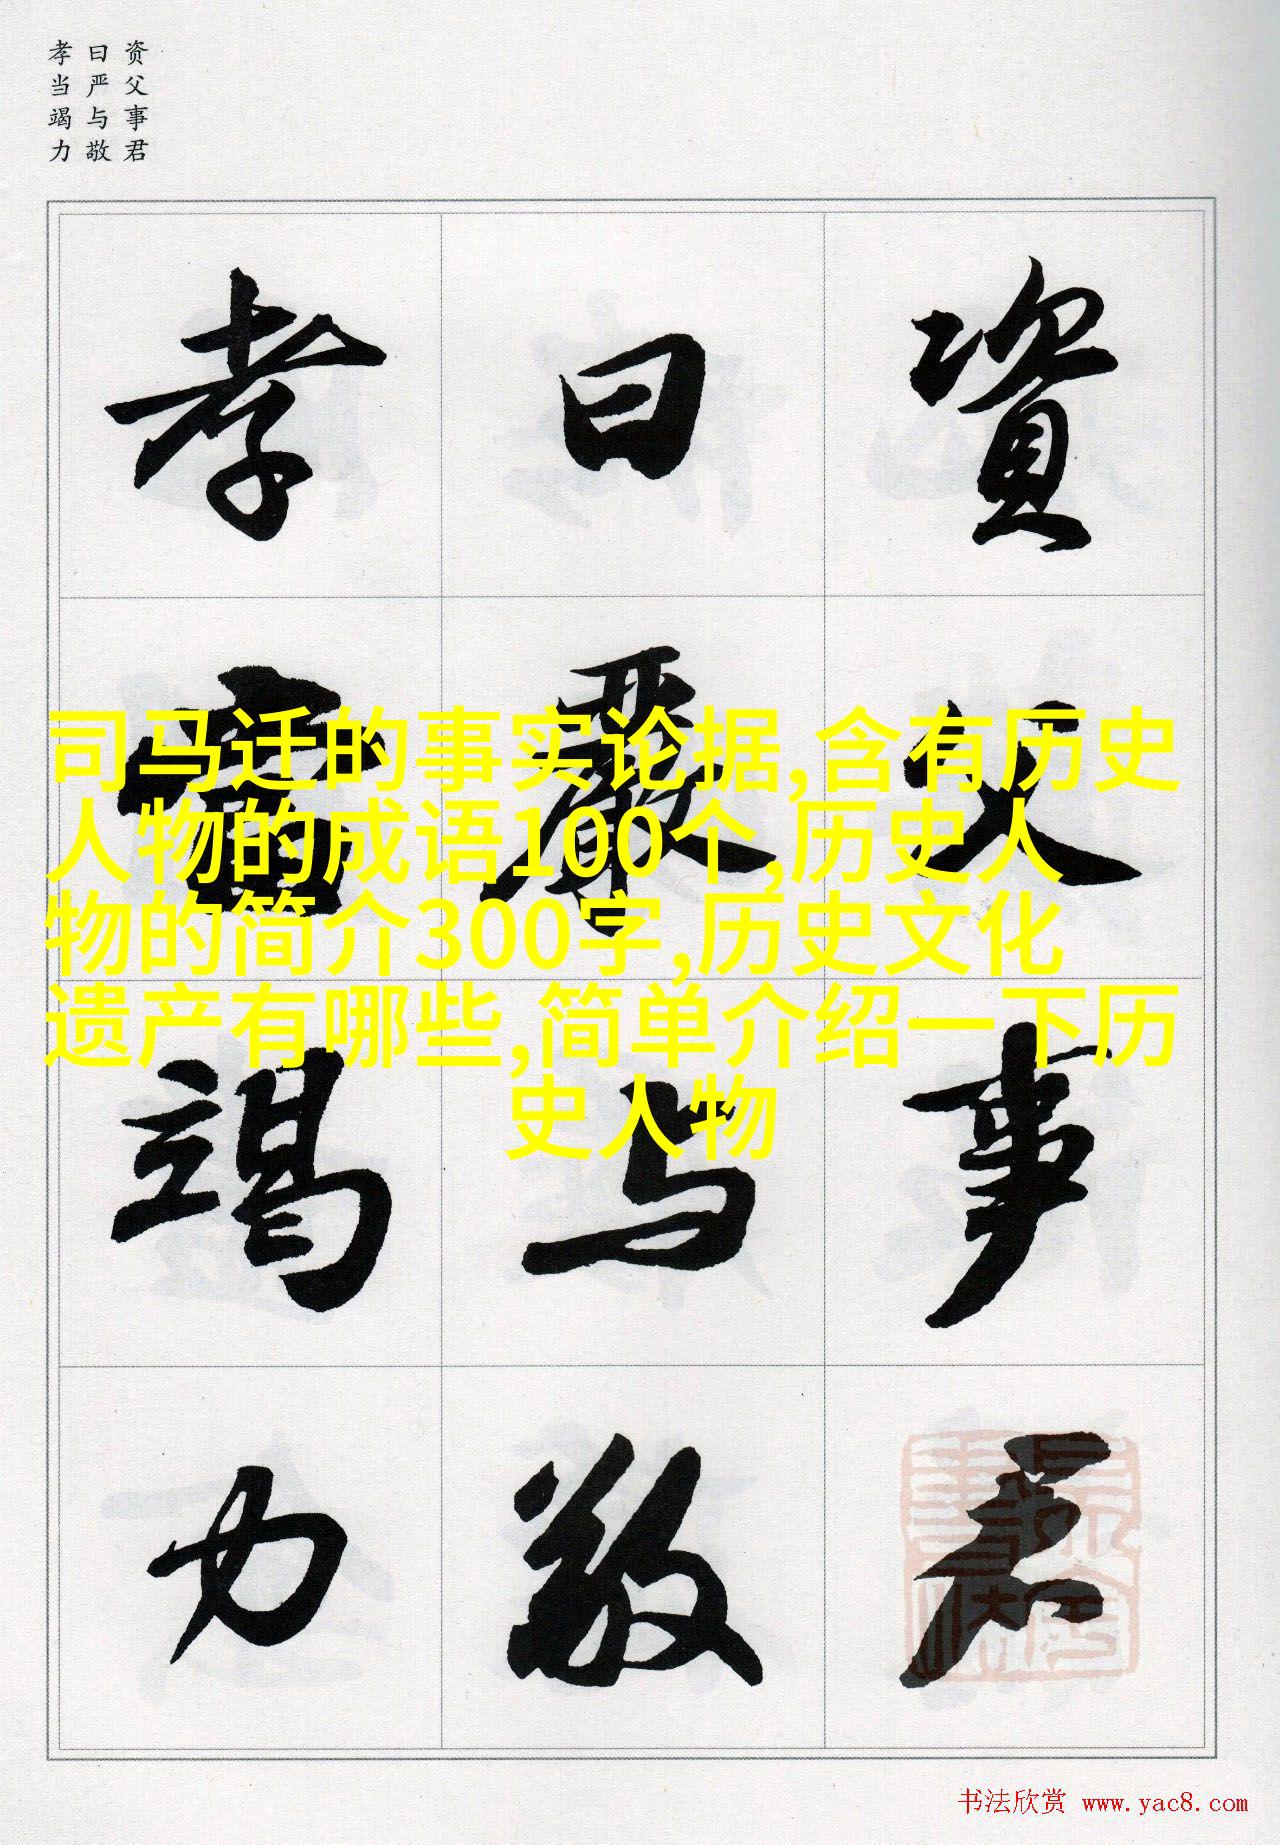 资父事君
曰严与敬
孝当竭力
資父事君
曰嚴与敬
孝當竭力
司马迁的事实论据,含有历史
人物的成语100个,历史人
物的简介300字,历史文化
遗产有哪些,简单介绍一下历
史人物
书法欣赏 www.yac8.com